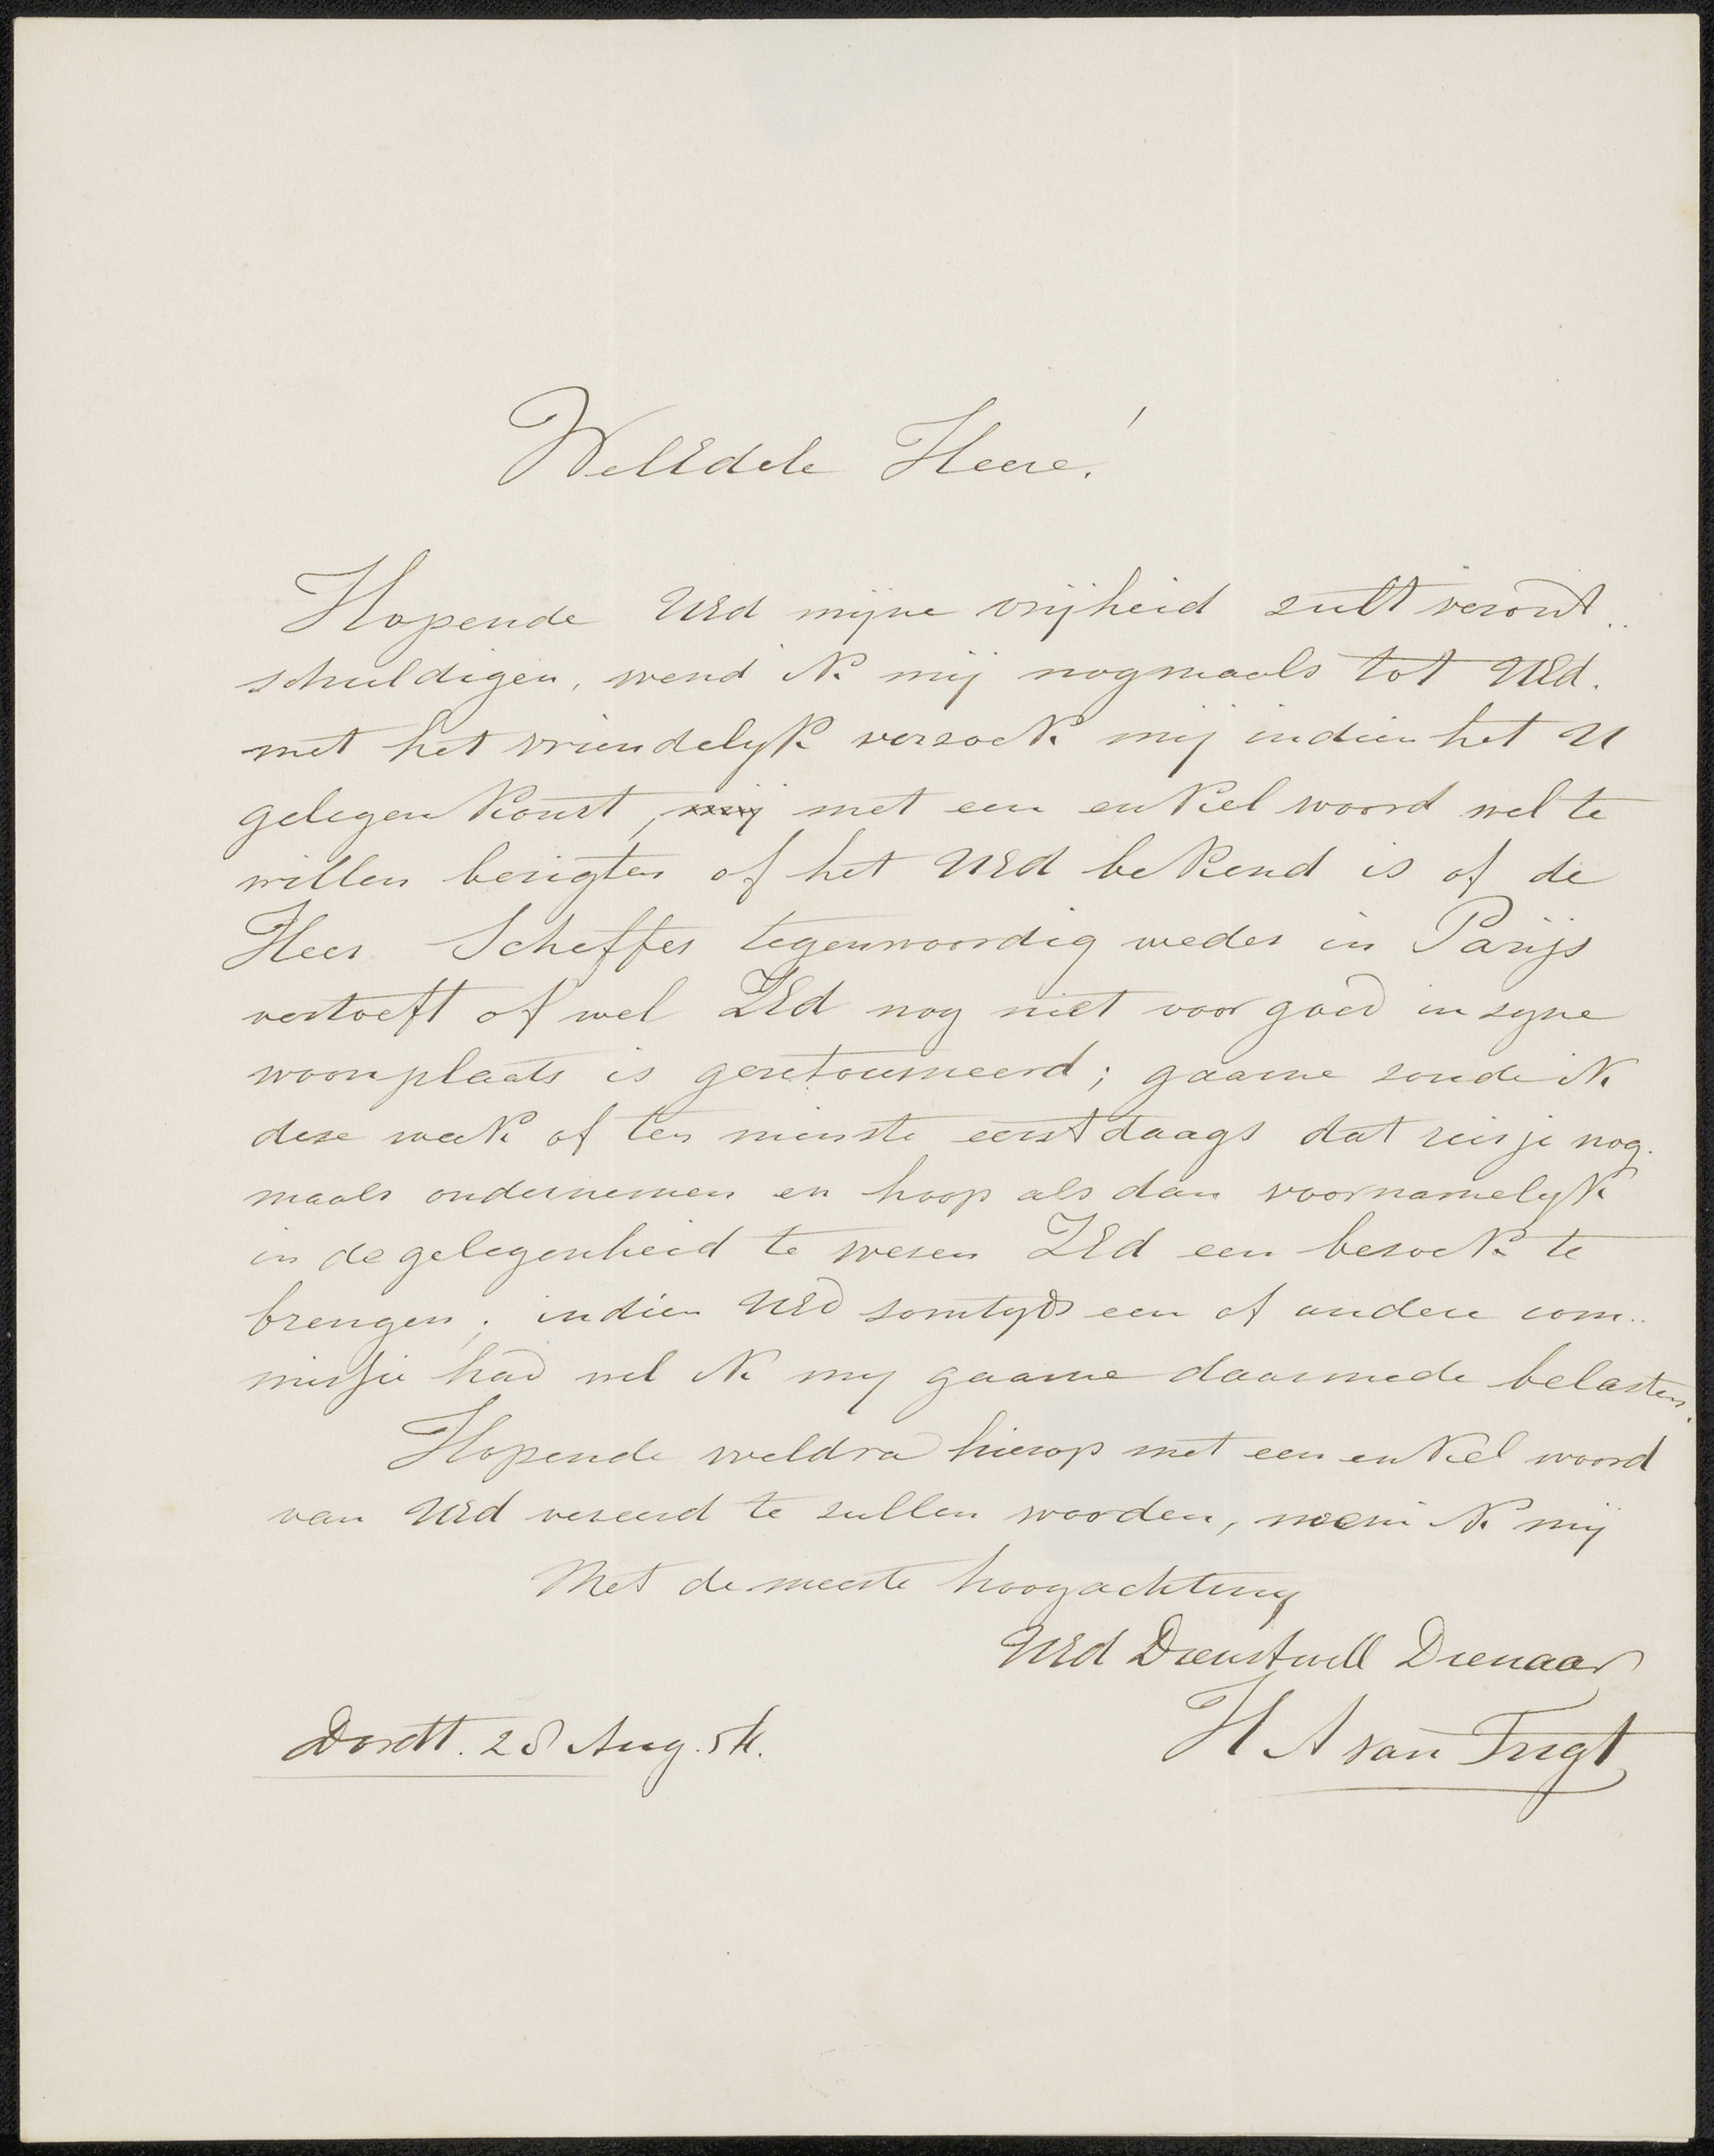 WelEdele Heere!
Hopende UEd mijne vrijheid zult veront..
schuldigen, wend ik mij nogmaals tot UEd.
met het vriendelyk verzoek mij indien het U
gelegen komt, mij met een enkel woord wel te
willen berigten of het UEd bekend is of de
Heer Scheffer tegenwoordig weder in Parijs
vertoeft of wel ZEd nog niet voor goed in zyne
woonplaats is geretourneerd; gaarne zoude ik
deze week of ten minste eerstdaags dat reisje nog.
maals ondernemen en hoop als dan voornamelyk
in de gelegenheid te wezen ZEd een bezoek te
brengen; indien UEd somtyds een of andere com..
missie had wil ik my gaarne daarmede belasten.
Hopende weldra hierop met een enkel woord
van UEd vereerd te zullen worden, noem ik mij
Met de meeste hoogachting
UEd Dienstwill Dienaar
H A van Trigt
Dordt. 28 Aug. 54.